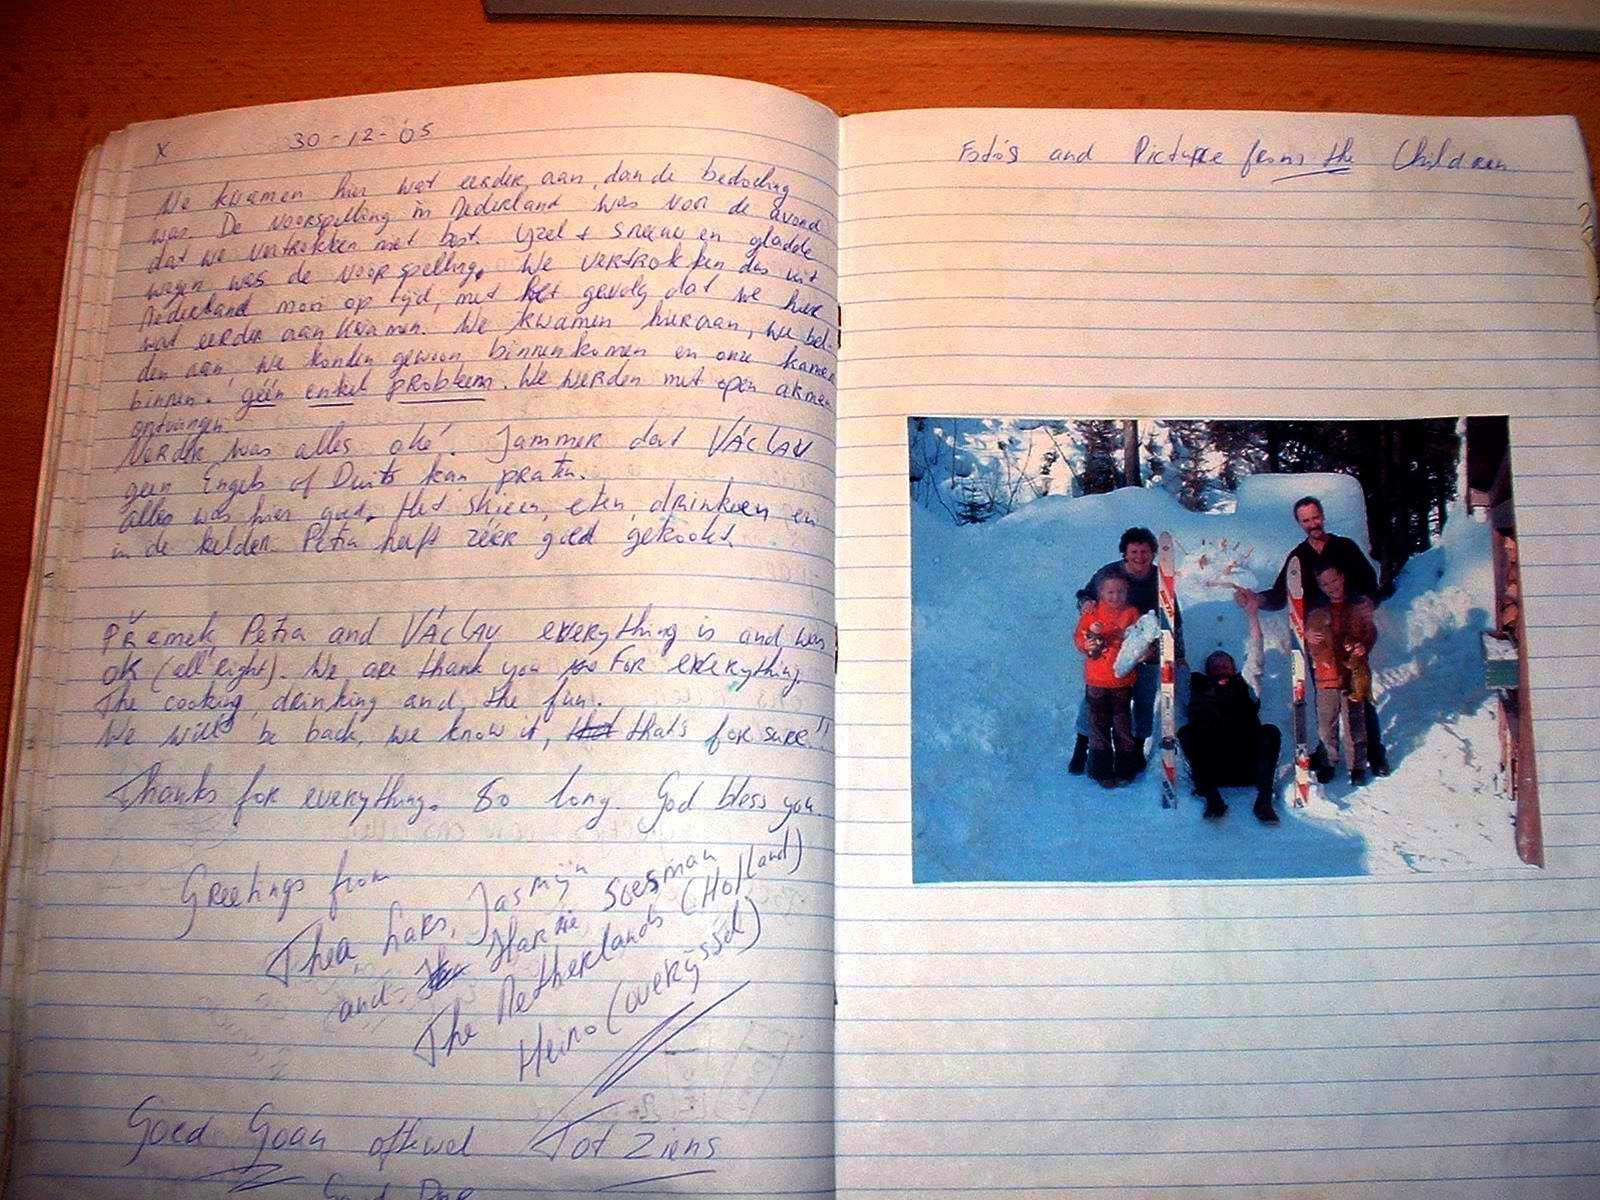 x 30-12-05
We kwamen hier wat eerder aan, dan de bedoeling
was. De voorspelling in Nederland was voor de avond
dat we vertrokken niet best. Yzel + sneeuw en gladde
wegen was de voorspelling. We vertrokken dus uit
Nederland mooi op tijd, met het gevolg dat we hier
wat eerder aan kwamen. We kwamen hieraan, we bel-
den aan, we konden gewoon binnenkomen en onze kamer
binnen. géén enkel probleem. We werden met open armen
ontvangen.
Verder was alles oké! Jammer dat VÁCLAV
geen Engels of Duits kan praten.
Alles was hier goed. Het skieen, eten, drinken en
in de kelder. Petra heeft zéér goed gekookt.
Přemek, Petra and VÁCLAV everything is and was
ok (all right). We are thank you for everything.
The cooking, drinking and, the fun.
We will be back, we know it, that's for sure!!
Thanks for everything. So long. God bless you.
Greetings from
Thea, Lars, Jasmijn
and Harrie Soesman
The Netherlands (Holland)
Heino (overijssel)
Goed Goan oftewel Tot Ziens
Foto's and Picture from the Children